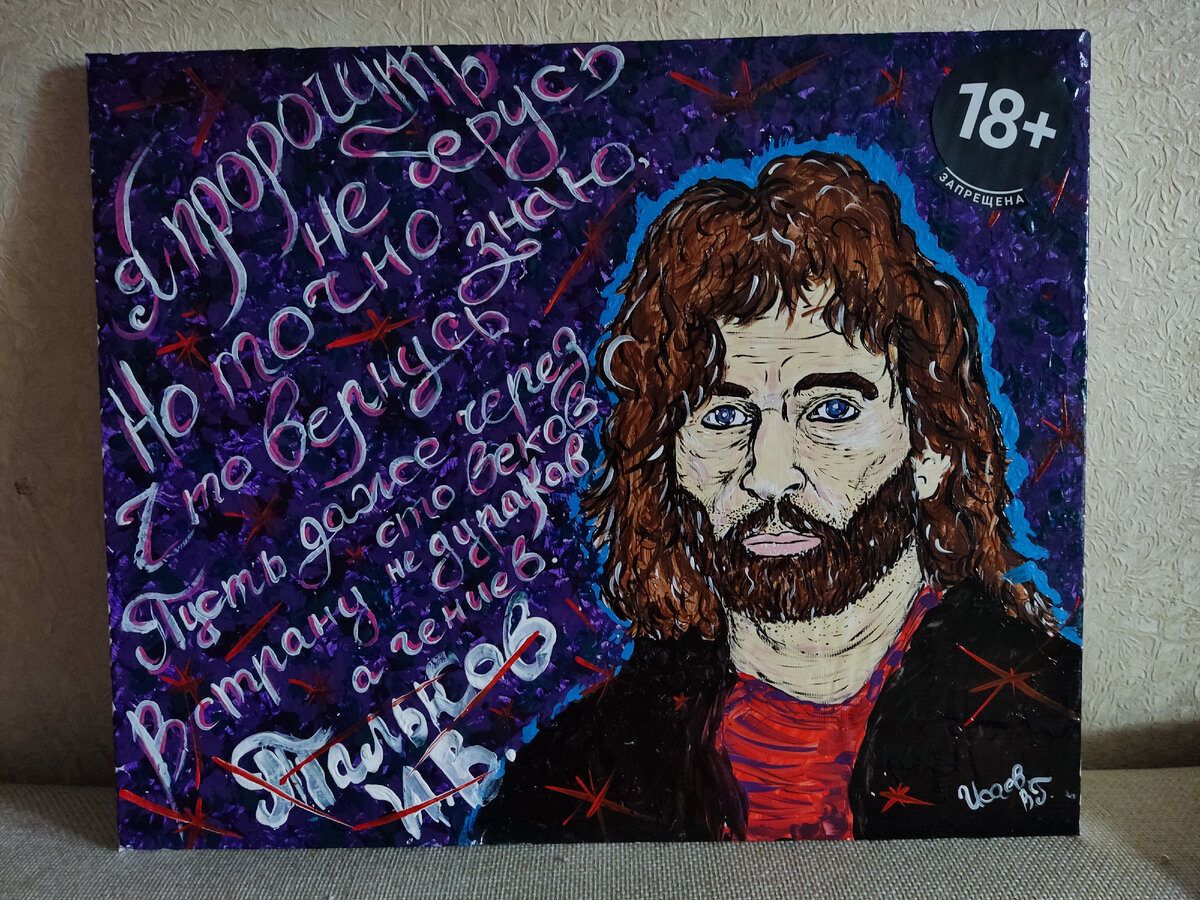 Я пророчить
не берусь
Но точно знаю,
Что вернусь
Пусть даже через
сто веков
В страну не дураков
а гениев.
Тальков
И.В.
18+
ЗАПРЕЩЕНА
Исаев
В.Г.